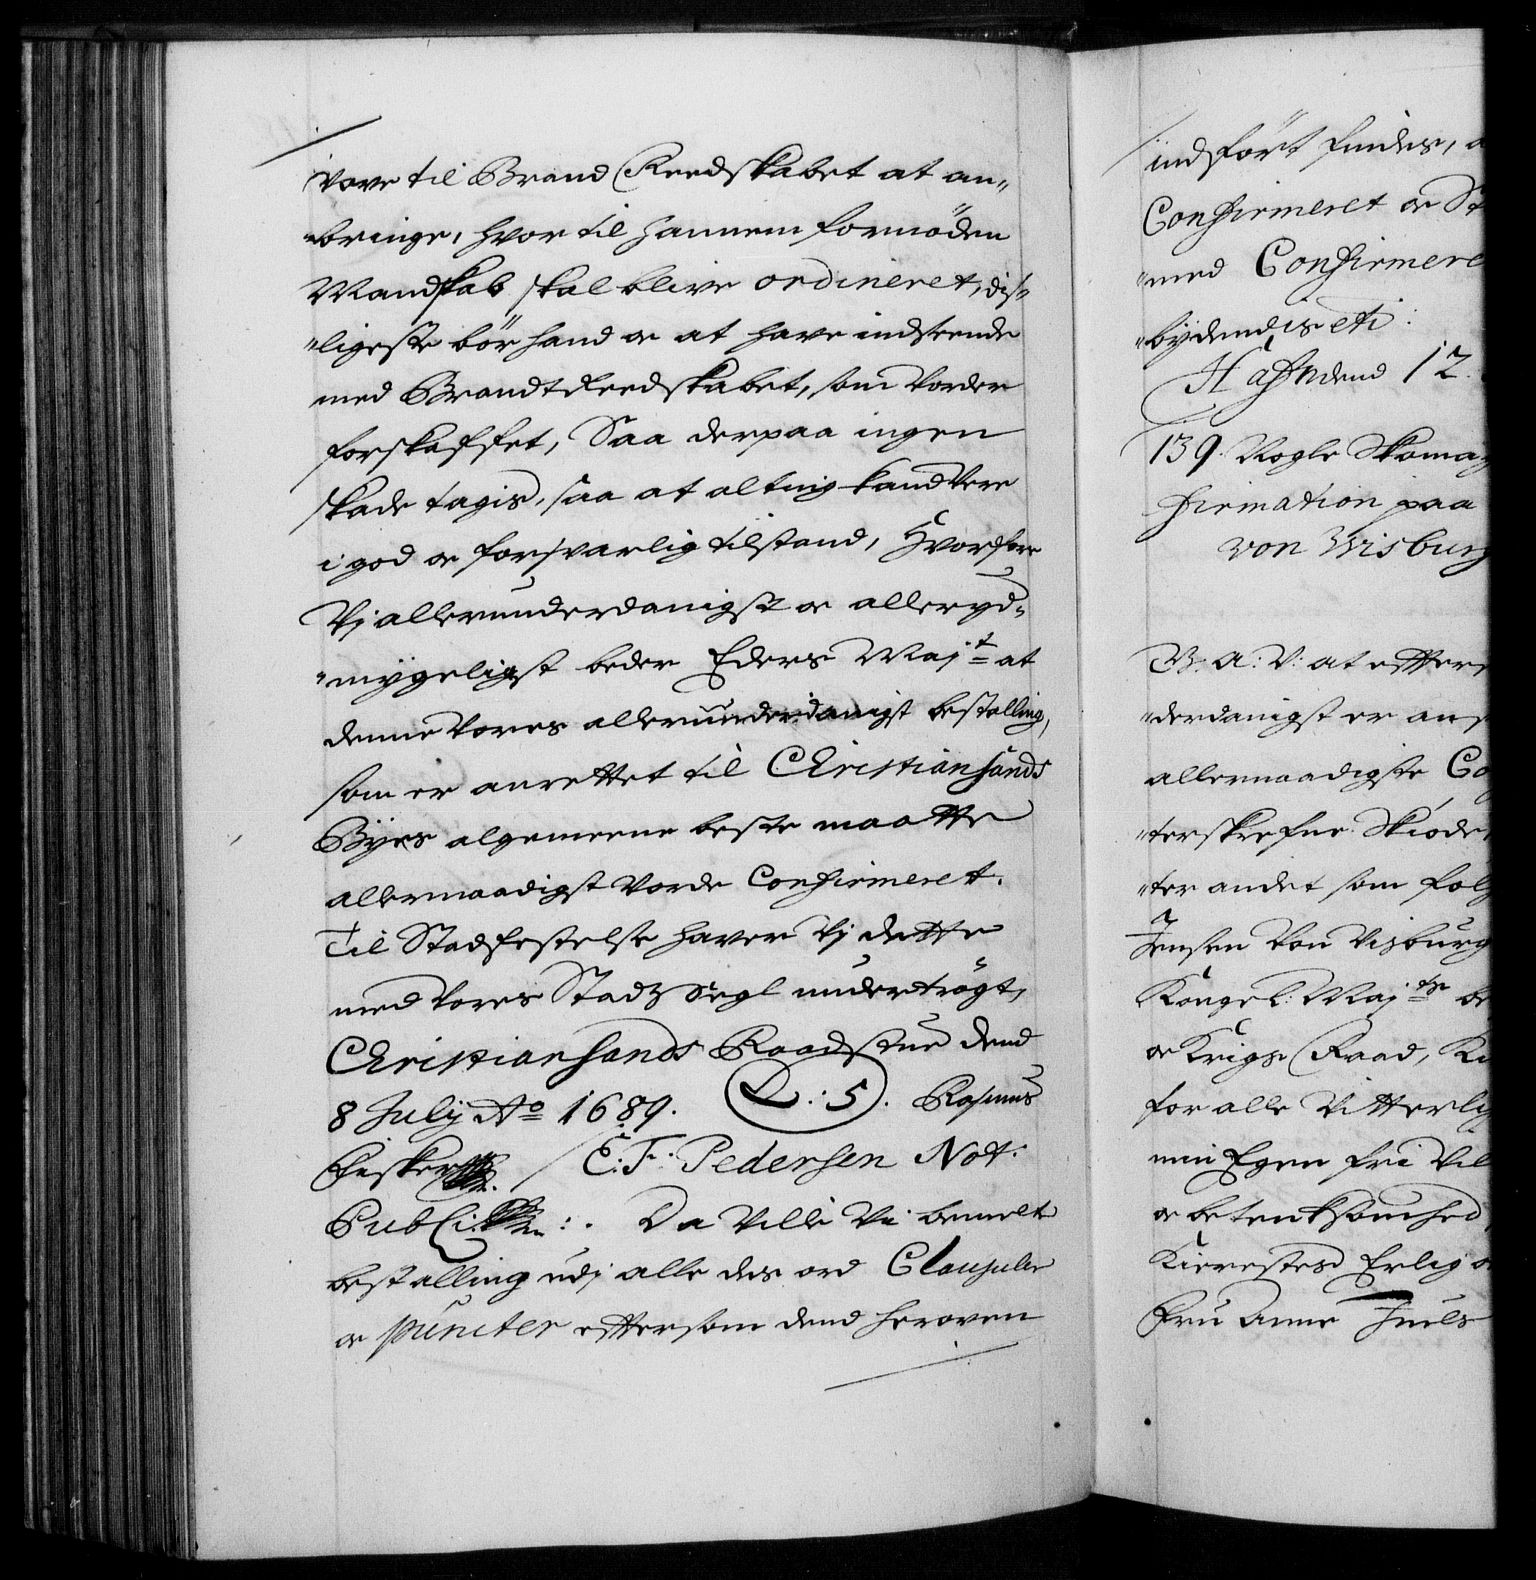 være til Brand Reedskabet at an„
„bringe, hvor til hannem fornöden
Mandskab skal blive ordineret, dis„
„ligeste bör hand oc at have indseende
med Brandt Reedskabet, som vorder
forskaffet, Saa derpaa ingen
skade tagis, saa at alting kand være
i god oc forsvarlig tilstand, Hvorfore
Vj allerunderdanigst oc allerÿd„
„mygeligst beder Eders Maj:t at
denne vores allerunderdanigst bestalling,
som er anrettet til Christiansands
Bÿes algemeene beste maatte
allernaadigst vorde Confirmeret.
Til Stadfestelse haver Vj dette
med vores Stadz Segl undertrögt,
Christiansands Raadstue dend
8 Julij Ao 1689. L:S. Rasmus
Fisker / C:F: Pedersen Not:
Public :. Da Ville Vi bemelte
bestalling udj alle des ord Clausuler
oc puncter eftersom dend heroven
indfört findes,
Confirmeret oc St
„med Confirmere
„bÿdendis etc:
Hafn dend 12.
139. Nogle Skomag
firmation paa
von Wisburg
V: A: V: at efters
„derdanigst er ans
allernaadigste Co
„terskrefne Skiöde
„ter andet som følg
Jensen von Visburg
Kongel: Maj:ts be
oc Krigs Raad, Ku
for alle Vitterlig
min Egen fri Vil
oc betenksomhed
Kierestes Erlig o
Fru Anne Juels